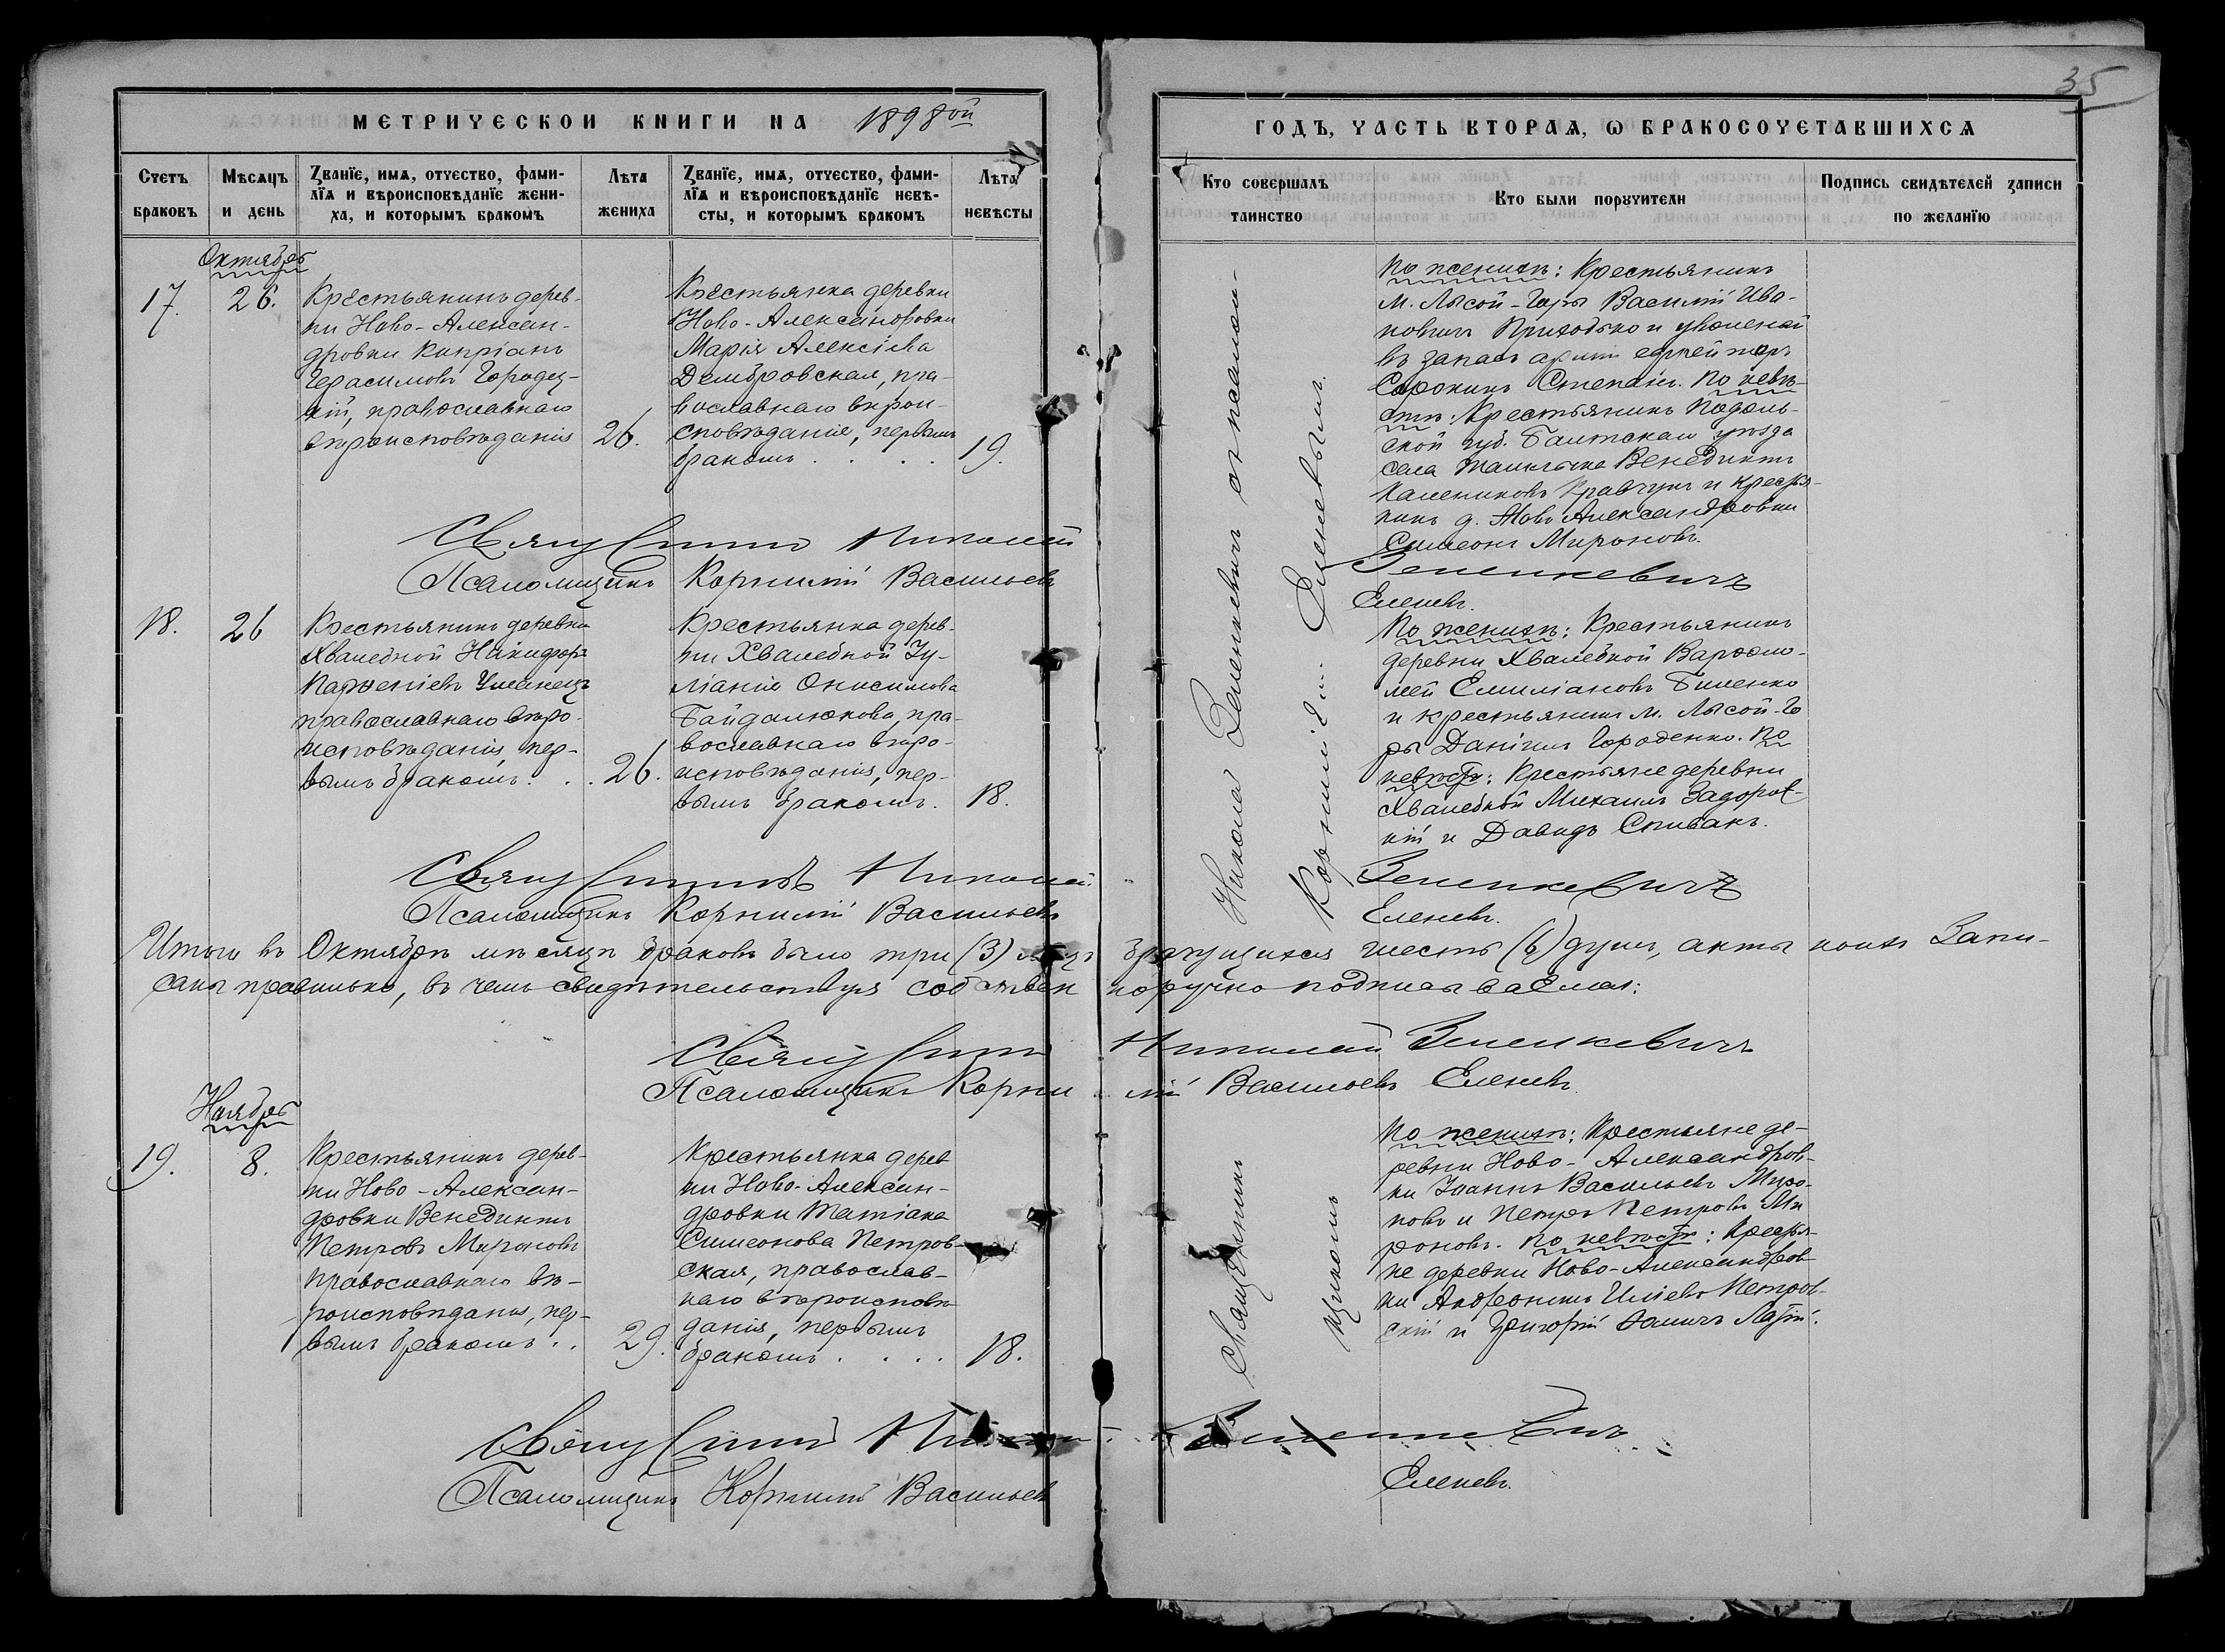 35
МЕТРИЧЕСКОЙ КНИГИ НА 1898ой
ГОДЪ, ЧАСТЬ ВТОРАѦ, Ѡ БРАКОСОЧЕТАВШИХСѦ
Счетъ браковъ
Мѣсѧцъ и день
Ꙁванїе, имѧ, отчество, фами-
лїѧ и вѣроисповѣданїе жени-
ха, и которымъ бракомъ
Лѣта жениха
Ꙁванїе, имѧ, отчество, фами-
лїѧ и вѣроисповѣданїе невѣ-
сты, и которымъ бракомъ
Лѣта невѣсты
Кто совершалъ таинство
Кто были поручители
Подпись свидѣтелей ꙁаписи
по желанїю
Октябрь
17.
26.
Крестьянинъ дерев-
ни Ново-Алексан-
дровки Кипріанъ
Герасимовъ Городец-
кій, православнаго
вѣроисповѣданія
26.
Крестьянка деревни
Ново-Александровки
Марія Алексіева
Дембровская, пра-
вославнаго вѣрои-
сповѣданія, первымъ
бракомъ . . . .
19.
По женихѣ: Крестьянинъ
м. Лысой-Горы Василій Ива-
новичъ Приходько и уволенный
въ запасъ арміи ефрейторъ
Сорокинъ Стефанъ. По невѣ-
стѣ: Крестьянинъ Подоль-
ской губ. Балтскаго уѣзда
села Венедиктъ
Калениковъ Кравчукъ и крестья-
нинъ д. Ново Александровки
Симеонъ Мироновъ.
Священникъ Николай Зеленкевичъ
Псаломщикъ Корнилій Васильевъ Еленевъ.
18.
26
Крестьянинъ деревни
Хвалебной Никифоръ
Парѳеніевъ Уманецъ
православнаго вѣро-
исповѣданія, пер-
вымъ бракомъ. . .
26.
Крестьянка дерев-
ни Хвалебной Іу-
ліанія Онисимова
Байдалюкова, пра-
вославнаго вѣро-
исповѣданія, пер-
вымъ бракомъ.
18.
По женихѣ: Крестьянинъ
деревни Хвалебной Варѳоло-
мей Емиліановъ Биленко
и крестьянинъ м. Лысой-Го
ры Даніилъ Городенко. По
невѣстѣ: Крестьяне деревни
Хвалебной Михаилъ Задорож-
ній и Давидъ Спивакъ.
Священникъ Николай Зеленкевичъ
Псаломщикъ Корнилій Васильевъ Еленевъ.
Итого въ Октябрѣ мѣсяцѣ браковъ было три (3) лицъ брачущихся шесть (6) душъ, акты коихъ Запи-
саны правильно, въ чемъ свидѣтельствуя собственноручно подписываемся:
Священникъ Николай Зеленкевичъ
Псаломщикъ Корнилій Васильевъ Еленевъ.
Ноябрь
19.
8.
Крестьянинъ дерев-
ни Ново-Алексан-
дровки Венедиктъ
Петровъ Мироновъ
православнаго вѣ-
роисповѣданія, пер-
вымъ бракомъ . .
29.
Крестьянка дерев
ни Ново-Алексан-
дровки Татіана
Симеонова Петров-
ская, православ-
наго вѣроисповѣ-
данія, первымъ
бракомъ . . . .
18.
Священникъ Николай Зеленкевичъ съ псалом-
щикомъ Корниліемъ Еленевымъ.
По женихѣ: Крестьяне де-
ревни Ново-Александров-
ки Іоаннъ Васильевъ Миро-
новъ и Петръ Петровъ Ми
роновъ. По невѣстѣ: Крестья-
не деревни Ново-Александров-
ки Андроникъ Иліевъ Петров-
скій и Григорій
Священникъ Николай Зеленкевичъ
Псаломщикъ Корнилій Васильевъ Еленевъ.